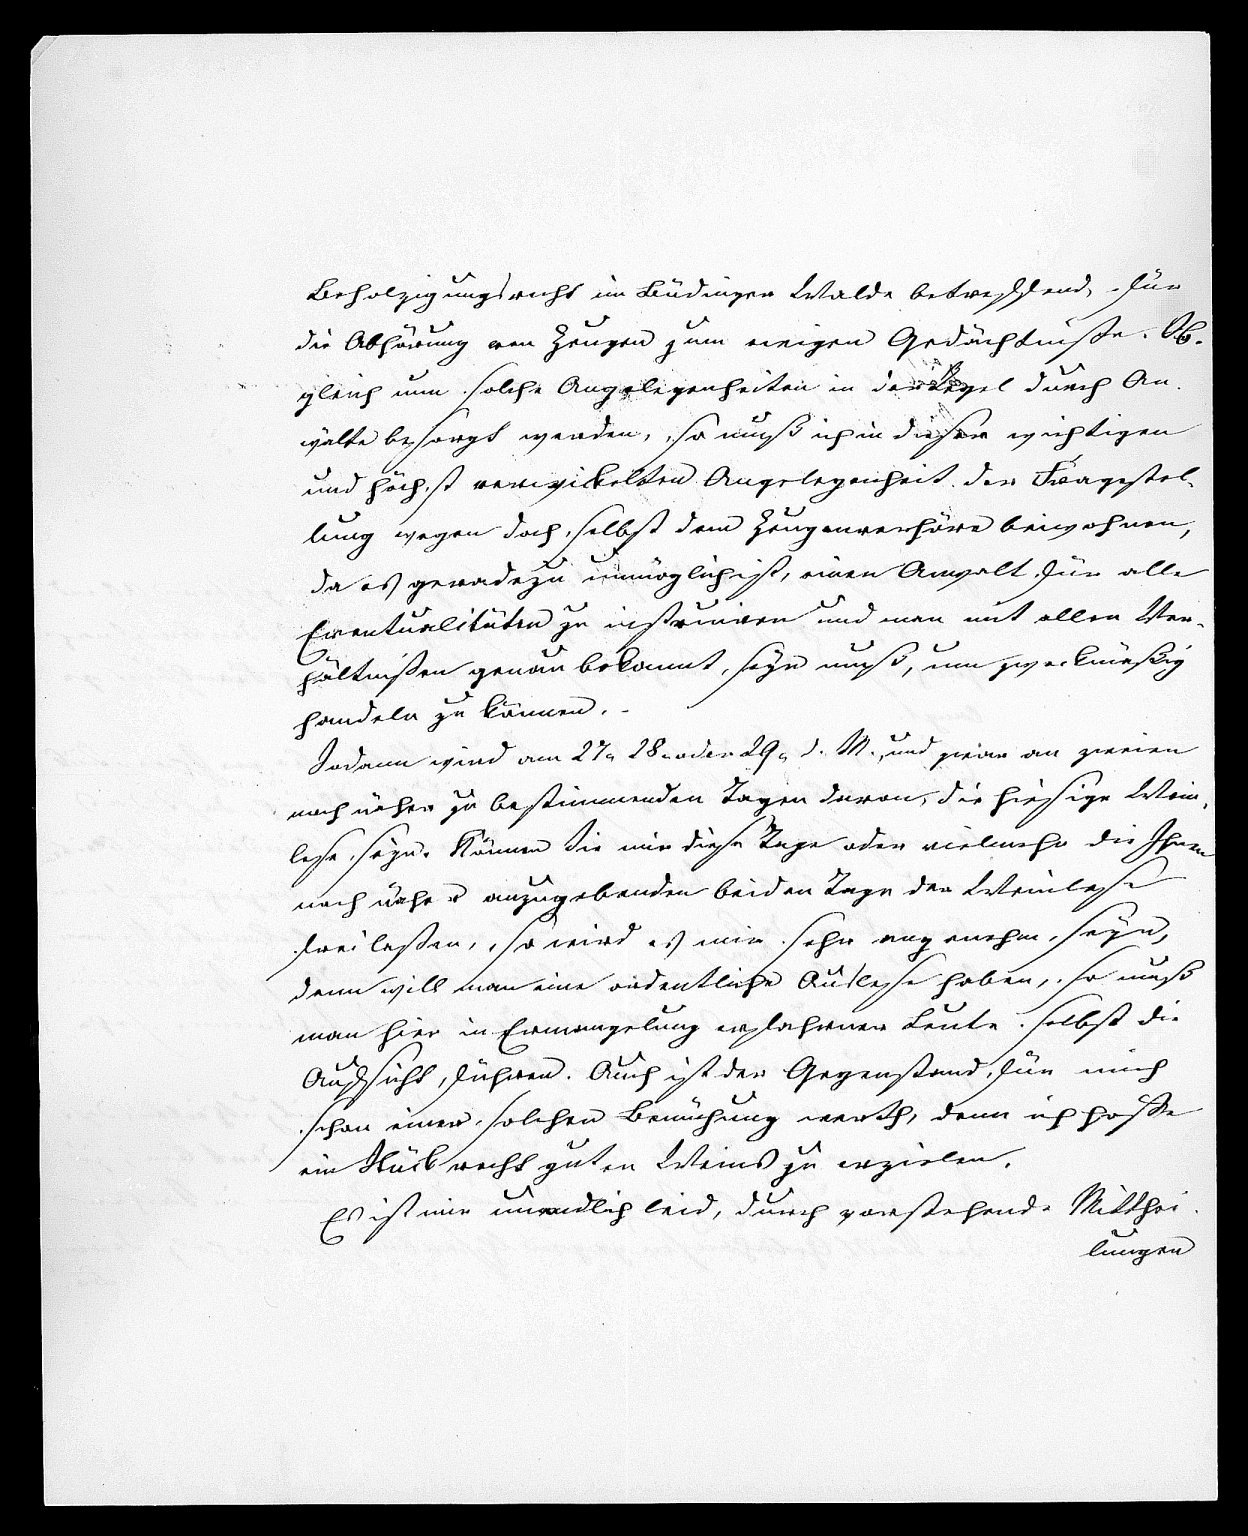 Beholzigungsrecht im Büdinger Walde betreffend, für
die Abhörung von Zeugen zum ewigen Gedächtniße. Ob-
gleich nun solche Angelegenheiten in der Regel durch An-
wälte besorgt werden, so muß ich in dieser wichtigen
und höchst verwickelten Angelegenheit der Fragestel-
lung wegen doch selbst dem Zeugenverhöre beiwohnen,
da es geradezu unmöglich ist, einen Anwalt für alle
Eventualitäten zu instruiren und man mit allen Ver-
hältnißen genau bekannt seyn muß, um zweckmäßig
handeln zu können. -
Sodann wird am 27, 28 oder 29, d. M., und zwar an zweien
noch näher zu bestimmenden Tagen davon, die hiesige Wein-
lese seyn. Können Sie mir diese Tage oder vielmehr die Ihnen
noch näher anzugebenden beiden Tage der Weinlese
frei laßen, so wird es mir sehr angenehm seyn,
denn will man eine ordentliche Auslese haben, so muß
man hier in Ermangelung erfahrner Leute selbst die
Aufsicht führen. Auch ist der Gegenstand für mich
schon einer solchen Bemühung werth, denn ich hoffe
ein Stück recht guten Weins zu erzielen.
Es ist mir unendlich leid, durch vorstehende Mitthei-
lungen